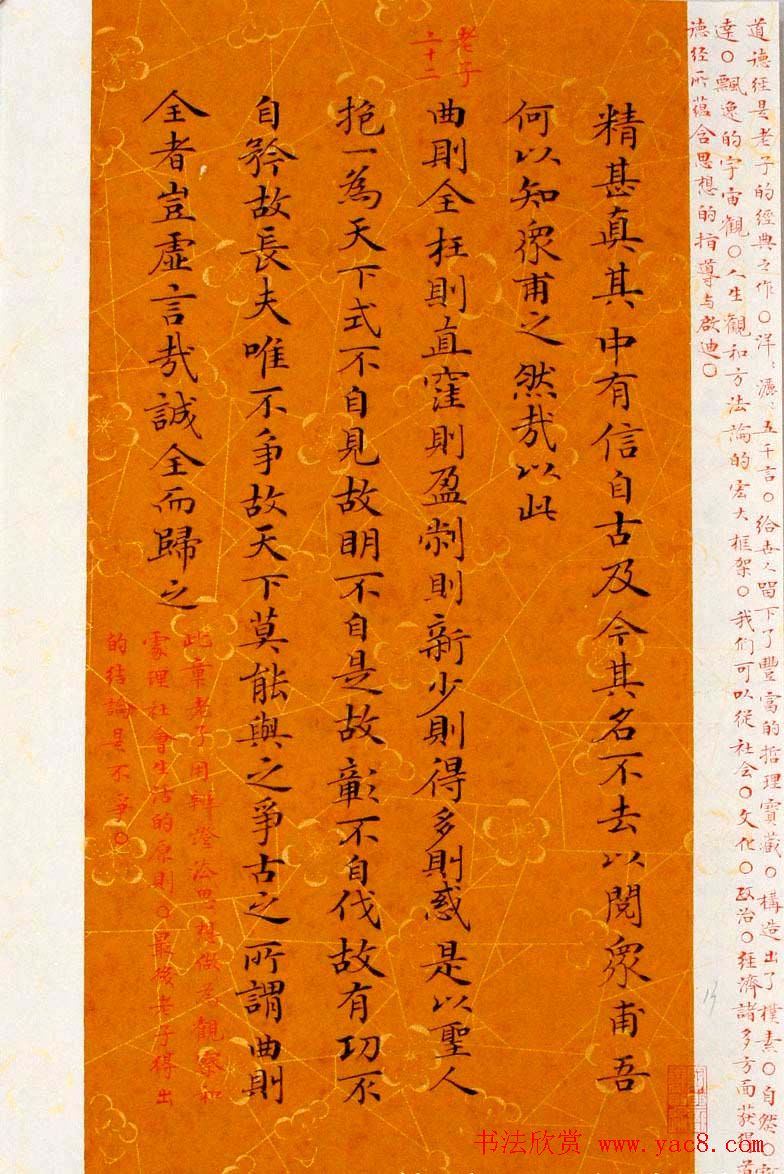 道德经是老子的經典之作〇洋洒五千言〇给世人留下了豐富的哲理寶藏〇構造出了樸素〇自然〇
達〇飄逸的宇宙觀〇人生觀和方法論的宏大框架〇我们可以從社会〇文化〇政治〇經濟諸多方面获得
德经所蕴含思想的指導与啟迪〇
精甚真其中有信自古及今其名不去以閱眾甫吾
何以知眾甫之然哉以此
老子
二十二
曲則全枉則直窪則盈敝則新少則得多則惑是以聖人
抱一為天下式不自見故明不自是故彰不自伐故有功不
自矜故長夫唯不爭故天下莫能與之爭古之所謂曲則
全者豈虛言哉誠全而歸之
此章老子用辩證法思想做為觀察和
處理社會生活的原則〇最後老子得出
的结論是不爭〇
书法欣赏 www.yac8.com